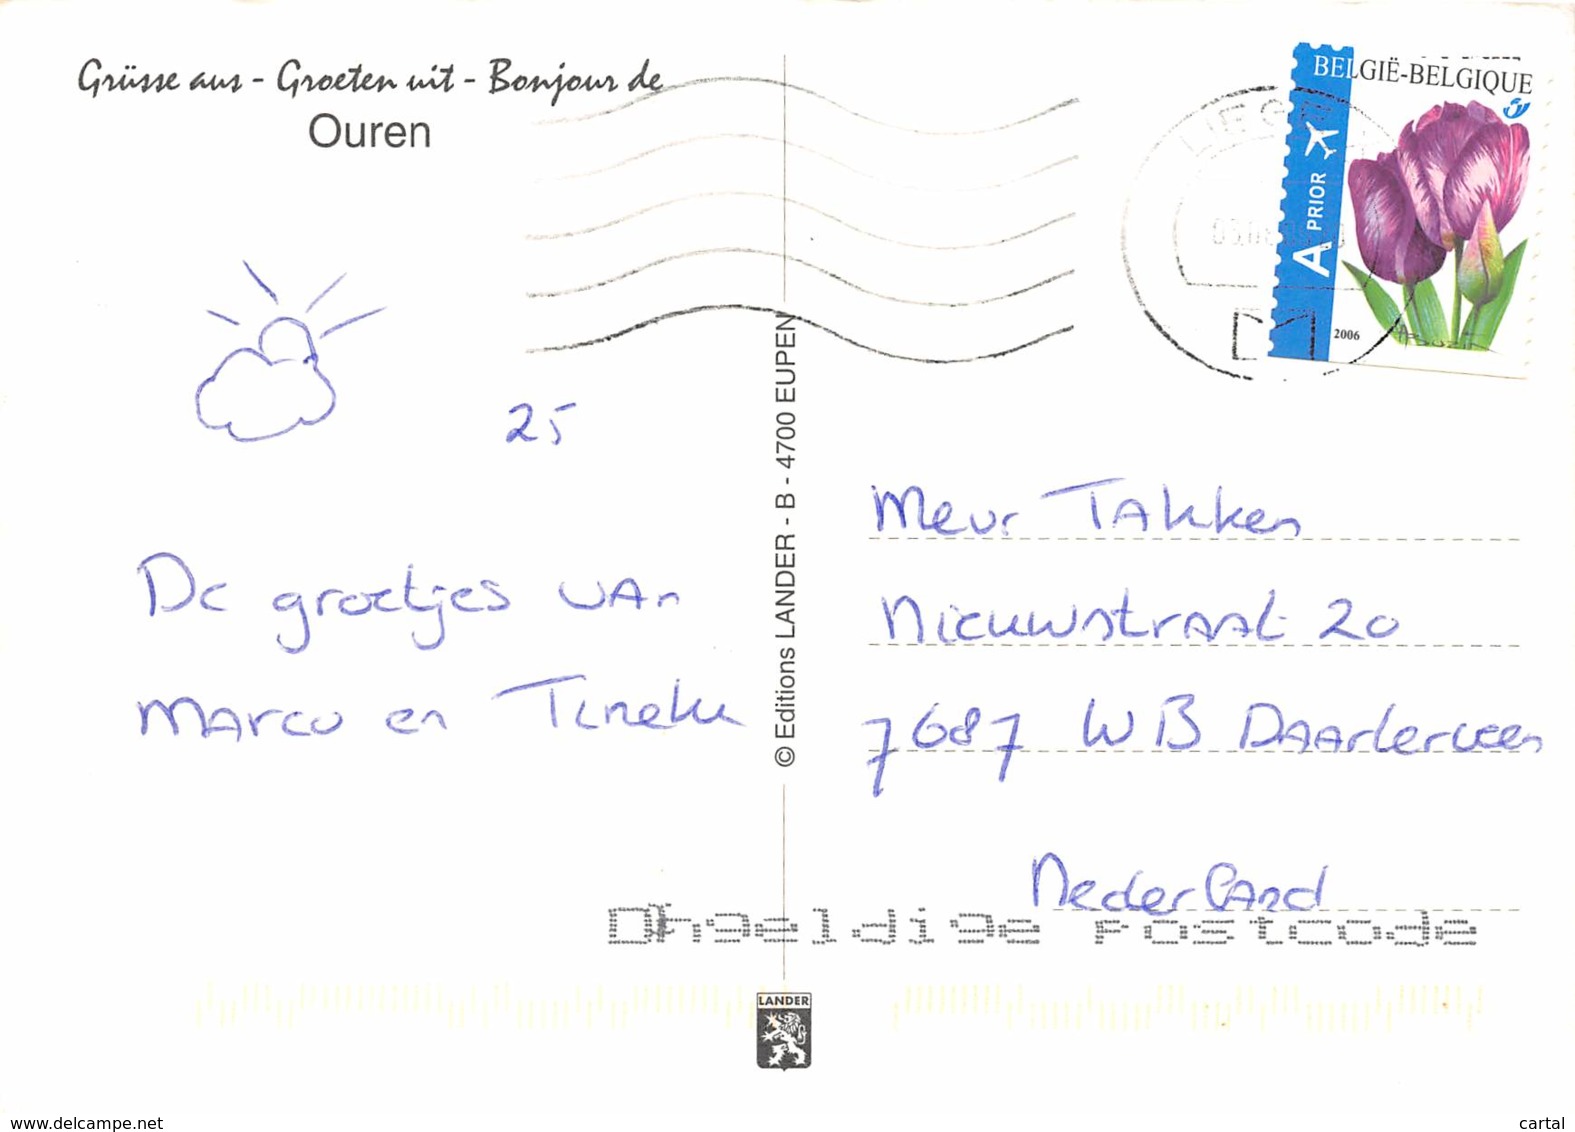 Grüsse aus - Groeten uit - Bonjour de
Ouren
BELGIË-BELGIQUE
A PRIOR
2006
25
De groetjes van
Marco en Tineke
© Editions LANDER - B - 4700 EUPEN
Mevr Takken
Nieuwstraat 20
7687 WB Daarlerveen
Nederland
Ongeldige Postcode
LANDER
www.delcampe.net
cartal